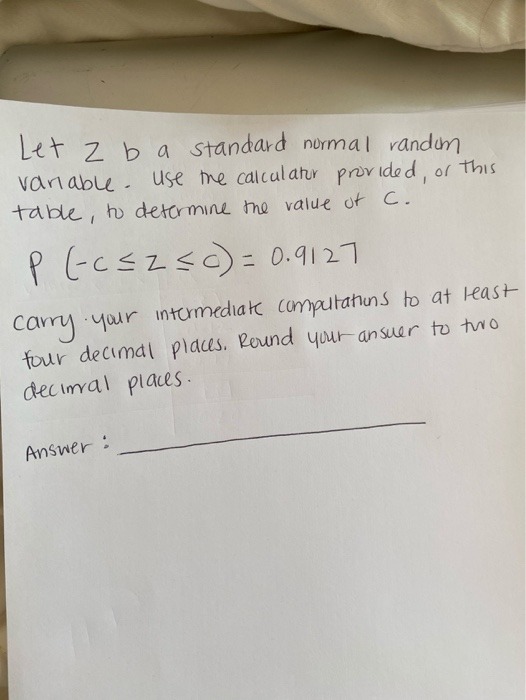 Let Z b a standard normal random
variable. Use the calculator provided, or this
table, to determine the value of C.
P (-C ≤ Z ≤ C) = 0.9127
carry your intermediate computations to at least
four decimal places. Round your answer to two
decimal places.
Answer :